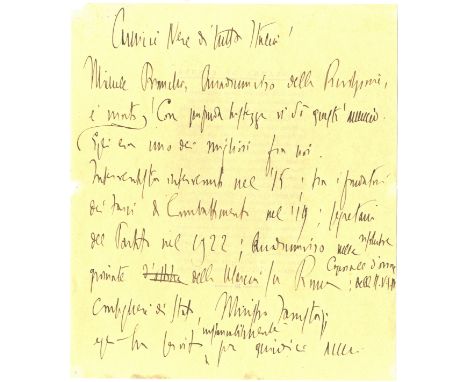 Camicie Nere di tutta Italia!
Michele Bianchi, Quadrumviro della Rivoluzione,
è morto! Con profonda tristezza vi dò questo annuncio.
Egli era uno dei migliori fra noi.
Interventista intervenuto nel '15; fra i fondatori
dei Fasci di Combattimento nel '19; segretario
del Partito nel 1922; Quadrumviro nelle risolutive
giornate della Marcia su Roma; Caporale d'onore della M.V.S.N.
Consigliere di Stato, Ministro
egli ha servito per quindici anni